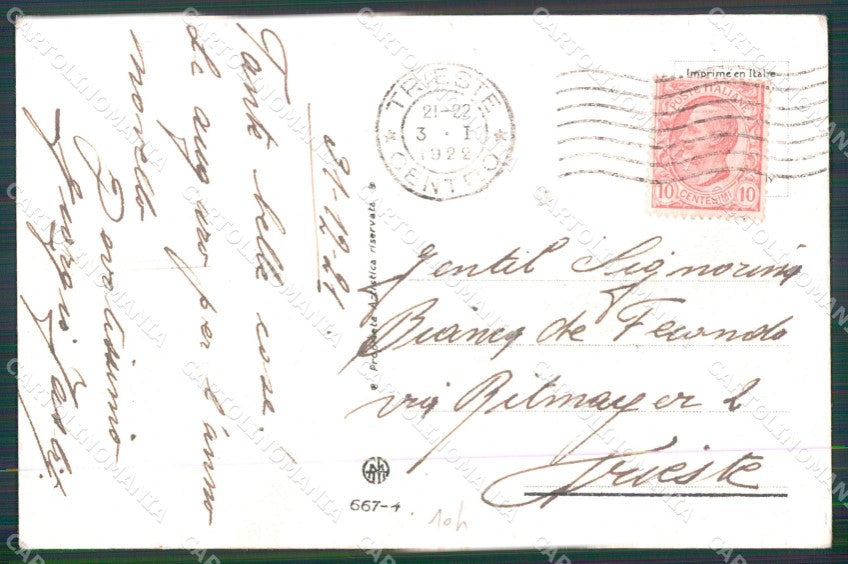 31.12.21.
Tante belle cose
de auguro per l'anno
novello
Proprietà Artistica riservata
TRIESTE
21-22
3 · I
1922
CENTRO
Imprimé en Italie
POSTE ITALIANE
10 CENTESIMI 10
Gentil Signorina
Bianca de Fecondo
via Bitmayer 2
Trieste
667-4
10h
CARTOLINOMANIA